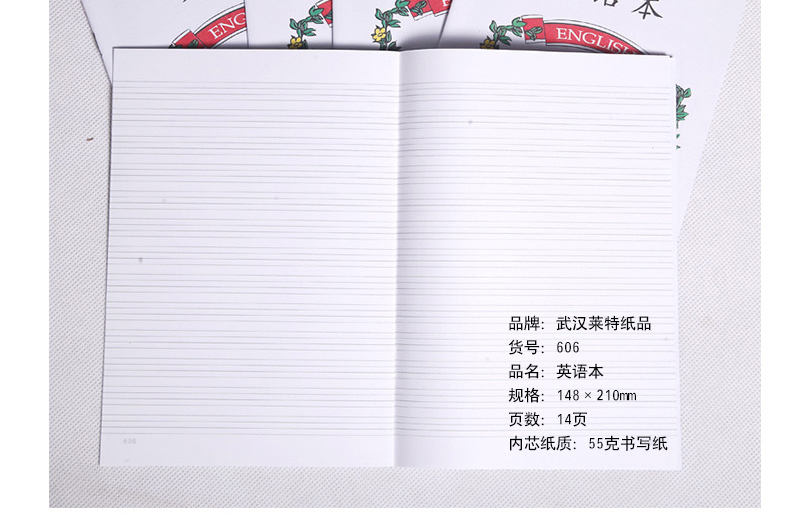 语本
ENGLISH
ENGLISH
品牌: 武汉莱特纸品
货号: 606
品名: 英语本
规格: 148×210mm
页数: 14页
内芯纸质: 55克书写纸
606